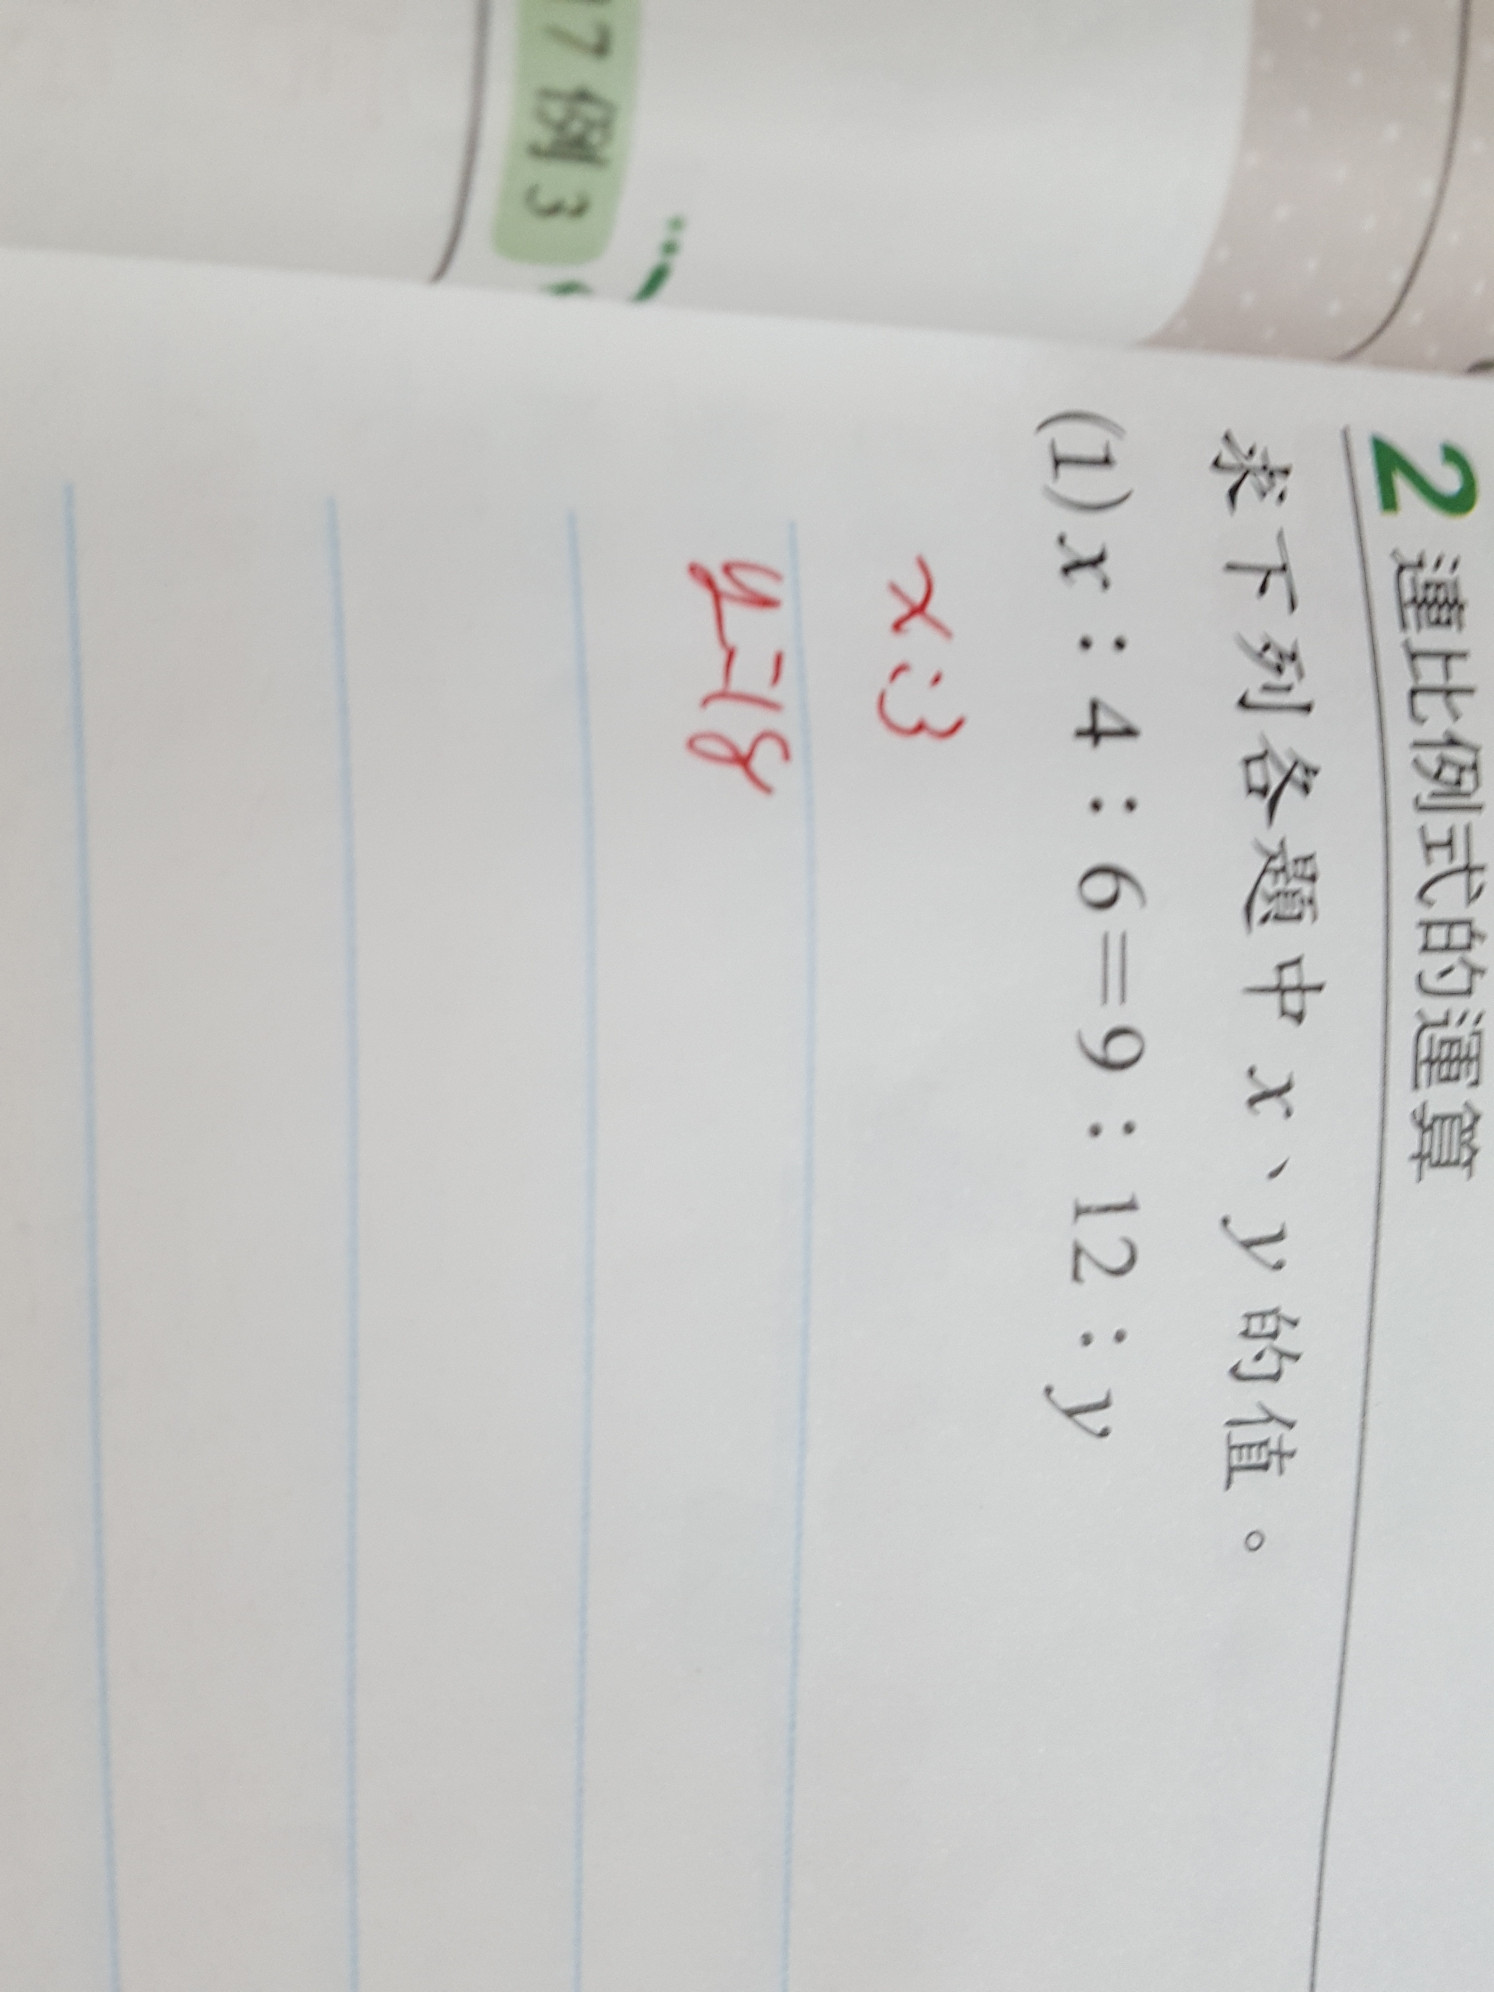 7 例 3
2 連比例式的運算
求下列各題中 x、y 的值。
(1) x：4：6＝9：12：y
x=3
y=18